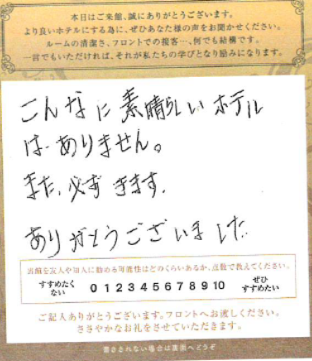 本日はご来館、誠にありがとうございます。
より良いホテルにする為に、ぜひあなた様の声をお聞かせください。
ルームの清潔さ、フロントでの接客…、何でも結構です。
一言でもいただければ、それが私たちの学びとなり励みになります。
こんなに素晴らしいホテル
はありません。
また、必ずきます。
ありがとうございました
当館を友人や知人に勧める可能性はどのくらいあるか、点数で教えてください。
すすめたくない 0 1 2 3 4 5 6 7 8 9 10 ぜひすすめたい
ご記入ありがとうございます。フロントへお渡しください。
ささやかなお礼をさせていただきます。
書ききれない場合は裏面へどうぞ